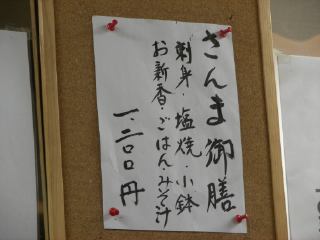 さんま御膳
刺身・塩焼・小鉢
お新香・ごはん・みそ汁
一、二〇〇円